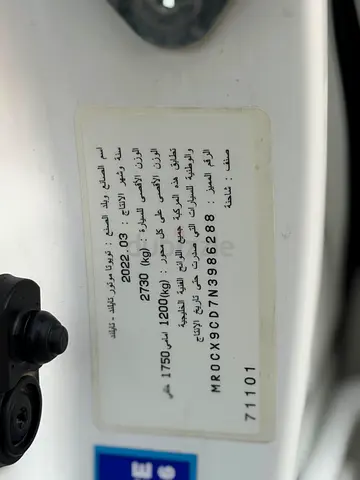 اسم الصانع وبلد الصنع : تويوتا موتور تايلاند - تايلاند
سنة وشهر الانتاج : 2022.03
الوزن الأقصى للسيارة : 2730 (kg)
الوزن الأقصى على كل محور : 1200(kg) امامي 1750 خلفي
تطابق هذه المركبة جميع اللوائح الفنية الخليجية
والوطنية للسيارات التي صدرت حتى تاريخ الانتاج
الرقم المميز : MR0CX9CD7N3986288
صنف : شاحنة
71101